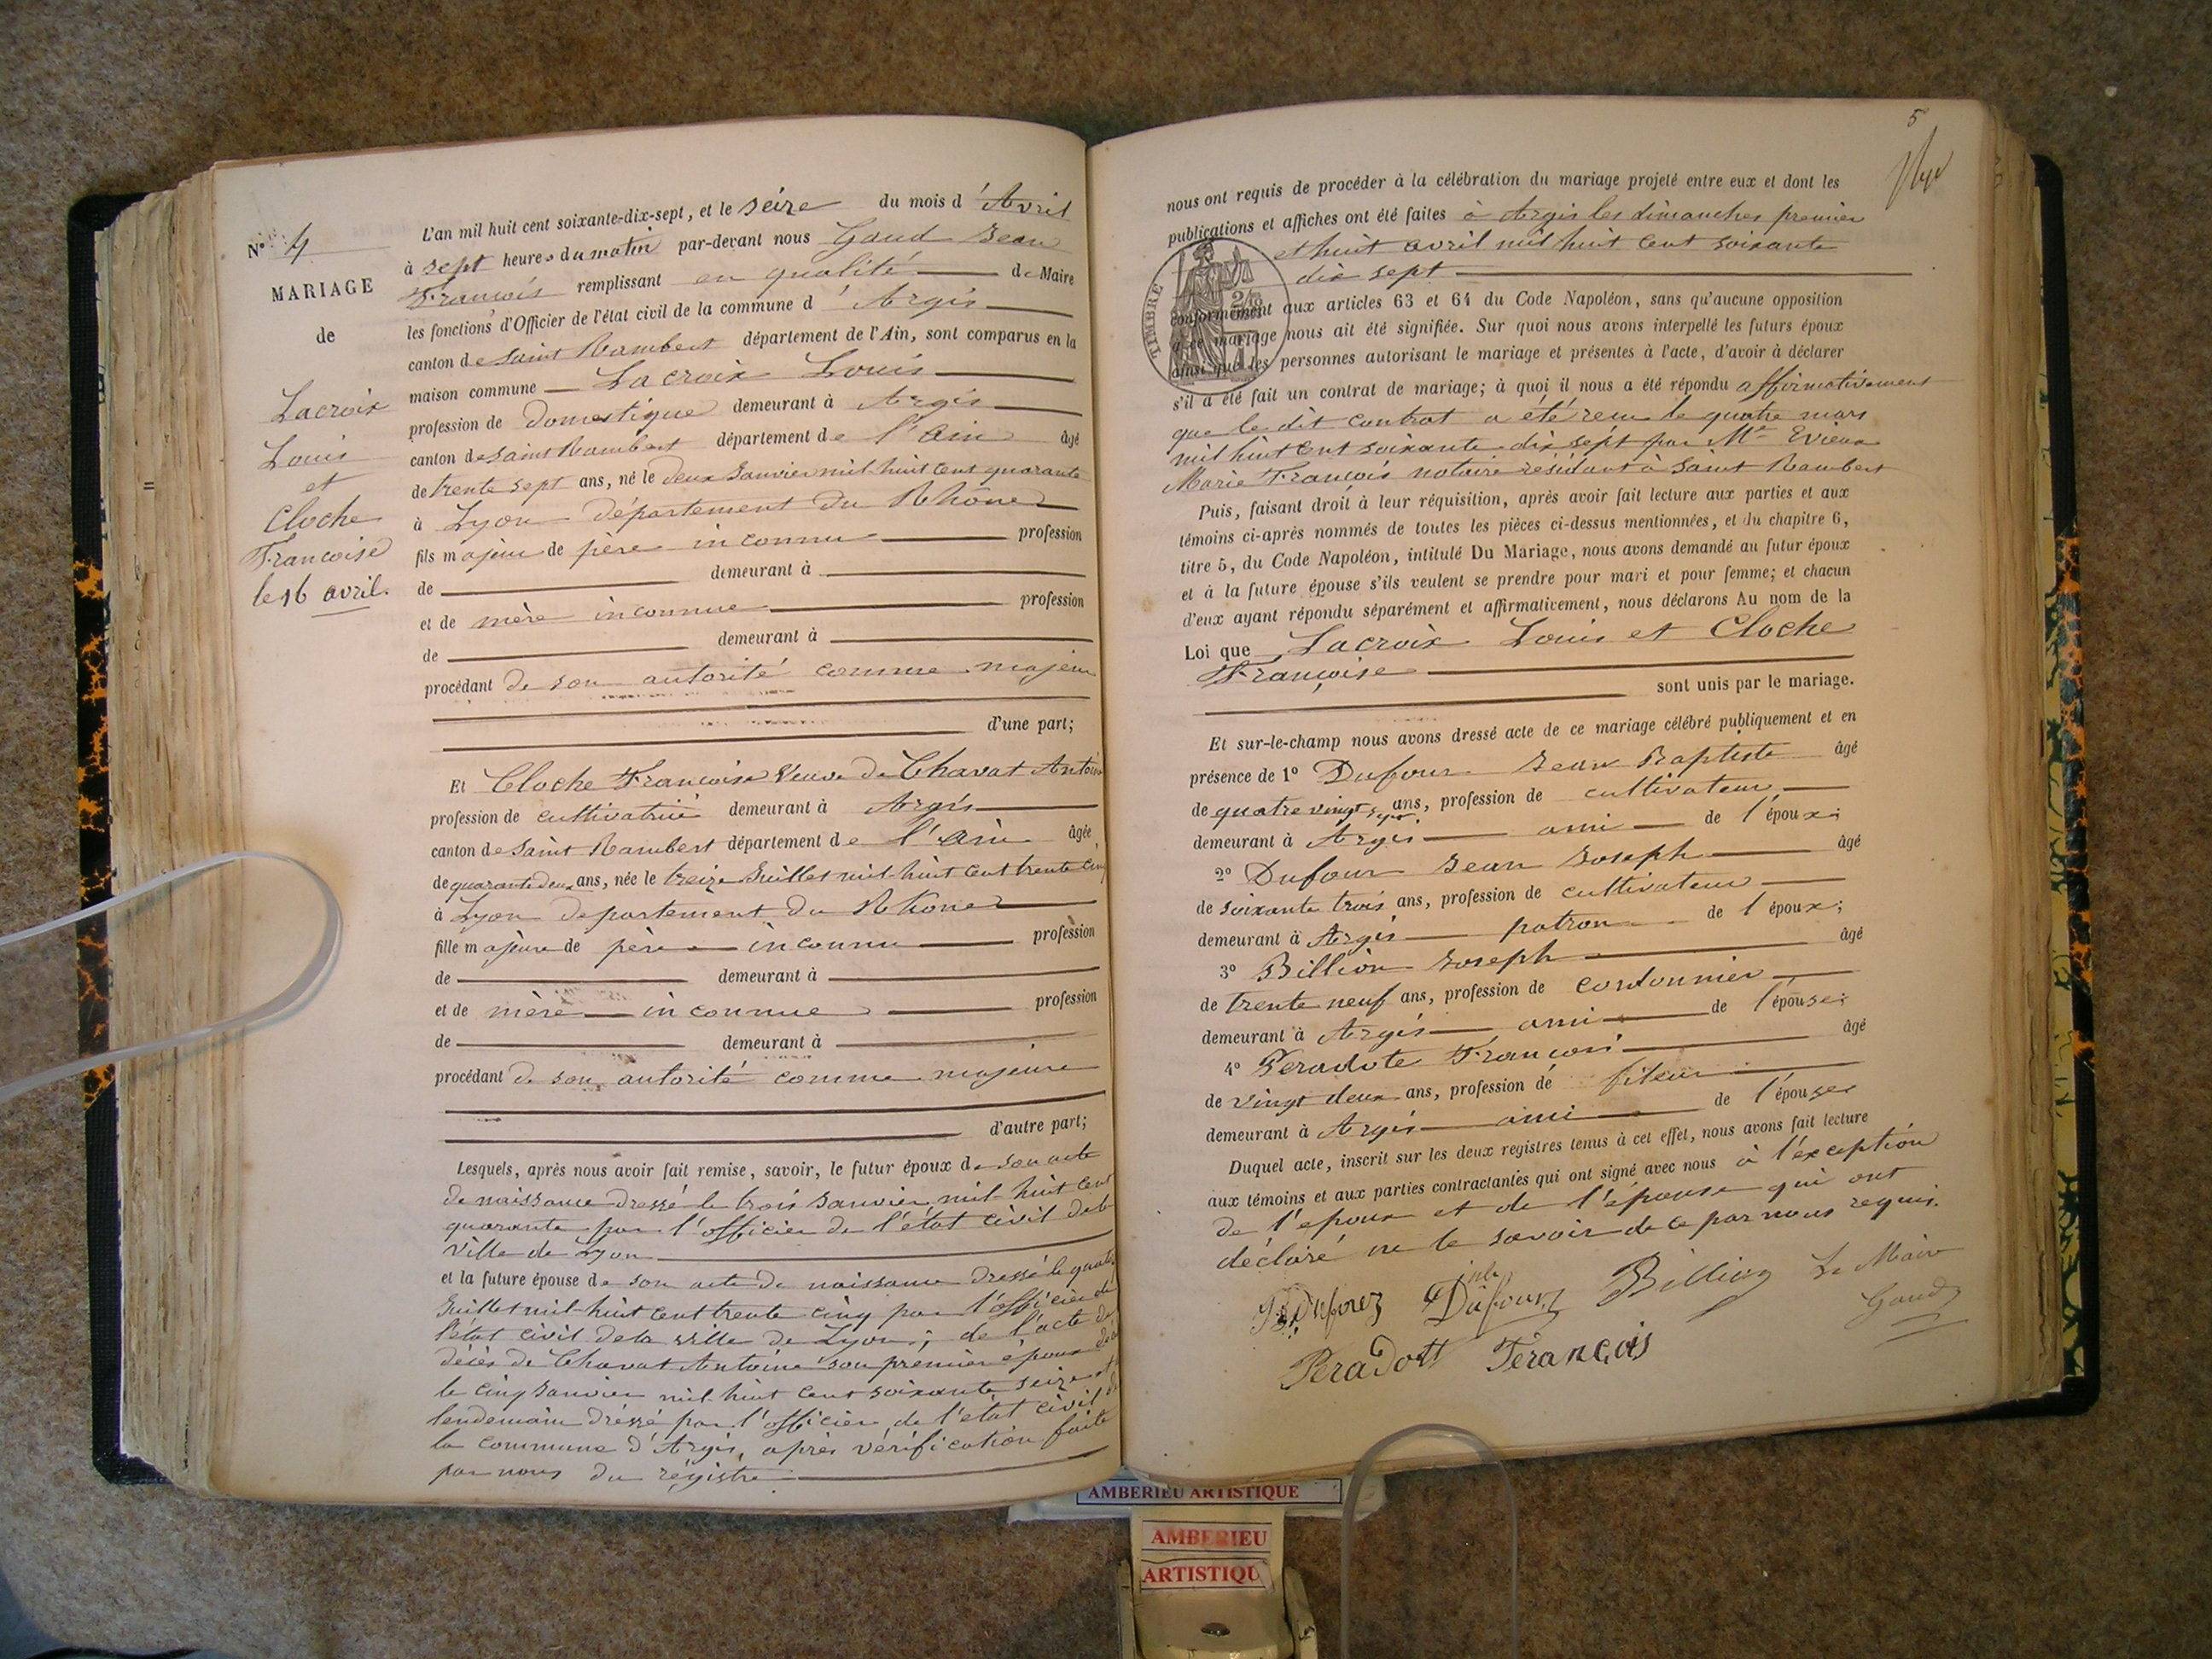 N° 4
MARIAGE
de
Lacroix
Louis
et
Cloche
Francoise
le 16 avril.
L'an mil huit cent soixante-dix-sept, et le seize du mois d'Avril
à sept heures du matin par-devant nous Gaud Jean
François remplissant en qualité de Maire
les fonctions d'Officier de l'état civil de la commune d'Argis
canton de Saint Rambert département de l'Ain, sont comparus en la
maison commune Lacroix Louis
profession de domestique demeurant à Argis
canton de Saint Rambert département de l'Ain âgé
de trente sept ans, né le deux Janvier mil huit cent quarante
à Lyon département du Rhône
fils majeur de père inconnu profession
de demeurant à
et de mère inconnue profession
de demeurant à
procédant de son autorité comme majeur
d'une part;
Et Cloche Francoise Veuve de Chavat Antoine
profession de cultivatrice demeurant à Argis
canton de Saint Rambert département de l'Ain âgée
de quarante deux ans, née le treize Juillet mil huit cent trente cinq
à Lyon departement du Rhone
fille majeure de père inconnu profession
de demeurant à
et de mère inconnue profession
de demeurant à
procédant de son autorité comme majeure
d'autre part;
Lesquels, après nous avoir fait remise, savoir, le futur époux de son acte
de naissance dressé le trois Janvier mil huit cent
quarante par l'officier de l'état civil de la
ville de Lyon
et la future épouse de son acte de naissance dressé le
Juillet mil huit cent trente cinq par l'officier de
l'état civil de la ville de Lyon; de l'acte de
décès de Chavat Antoine son premier époux
le cinq Janvier mil huit cent soixante seize et
lendemain dressé par l'officier de l'état civil de
la commune d'Argis, après vérification faite
par nous du régistre
5
nous ont requis de procéder à la célébration du mariage projeté entre eux et dont les
publications et affiches ont été faites à Argis les dimanches premier
et huit avril mil huit cent soixante
dix sept
TIMBRE
conformément aux articles 63 et 64 du Code Napoléon, sans qu'aucune opposition
à ce mariage nous ait été signifiée. Sur quoi nous avons interpellé les futurs époux
ainsi que les personnes autorisant le mariage et présentes à l'acte, d'avoir à déclarer
s'il a été fait un contrat de mariage; à quoi il nous a été répondu affirmativement
que le dit contrat a été reçu le quatre mars
mil huit cent soixante dix sept par Me
Marie François notaire résidant à Saint Rambert
Puis, faisant droit à leur réquisition, après avoir fait lecture aux parties et aux
témoins ci-après nommés de toutes les pièces ci-dessus mentionnées, et du chapitre 6,
titre 5, du Code Napoléon, intitulé Du Mariage, nous avons demandé au futur époux
et à la future épouse s'ils veulent se prendre pour mari et pour femme; et chacun
d'eux ayant répondu séparément et affirmativement, nous déclarons Au nom de la
Loi que Lacroix Louis et Cloche
Françoise
sont unis par le mariage.
Et sur-le-champ nous avons dressé acte de ce mariage célébré publiquement et en
présence de 1° Dufour Jean Baptiste âgé
de quatre vingt ans, profession de cultivateur
demeurant à Argis ami de l'époux;
2° Dufour Jean Joseph âgé
de soixante trois ans, profession de cultivateur
demeurant à Argis patron de l'époux;
3° Billion Joseph âgé
de trente neuf ans, profession de cordonnier
demeurant à Argis ami de l'épouse;
4° Peradote François âgé
de vingt deux ans, profession de fileur
demeurant à Argis ami de l'épouse
Duquel acte, inscrit sur les deux registres tenus à cet effet, nous avons fait lecture
aux témoins et aux parties contractantes qui ont signé avec nous à l'exception
de l'epoux et de l'épouse qui ont
déclaré ne le savoir de ce par nous requis.
Dufour Billion Le Maire
Gaud
Peradott Férançois
AMBERIEU ARTISTIQUE
AMBERIEU
ARTISTIQU